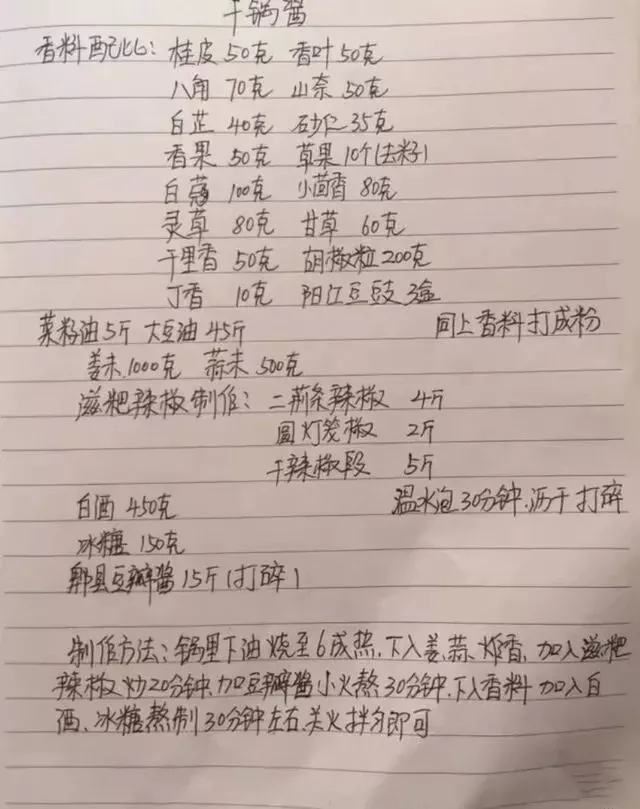 干锅酱
香料配比：桂皮50克 香叶50克
八角 70克 山奈 50克
白芷 40克 砂仁35克
香果 50克 草果10个(去籽)
白蔻 100克 小茴香 80克
灵草 80克 甘草 60克
千里香 50克 胡椒粒200克
丁香 10克 阳江豆豉 3盒
菜籽油5斤 大豆油45斤 同上香料打成粉
姜末1000克 蒜末500克
滋粑辣椒制作：二荆条辣椒 4斤
圆灯笼椒 2斤
干辣椒段 5斤
白酒 450克 温水泡30分钟.沥干打碎
冰糖 150克
郫县豆瓣酱15斤(打碎)
制作方法：锅里下油烧至6成热.下入姜.蒜.炸香.加入滋粑
辣椒炒20分钟.加豆瓣酱小火熬30分钟.下入香料加入白
酒.冰糖熬制30分钟左右.关火拌匀即可